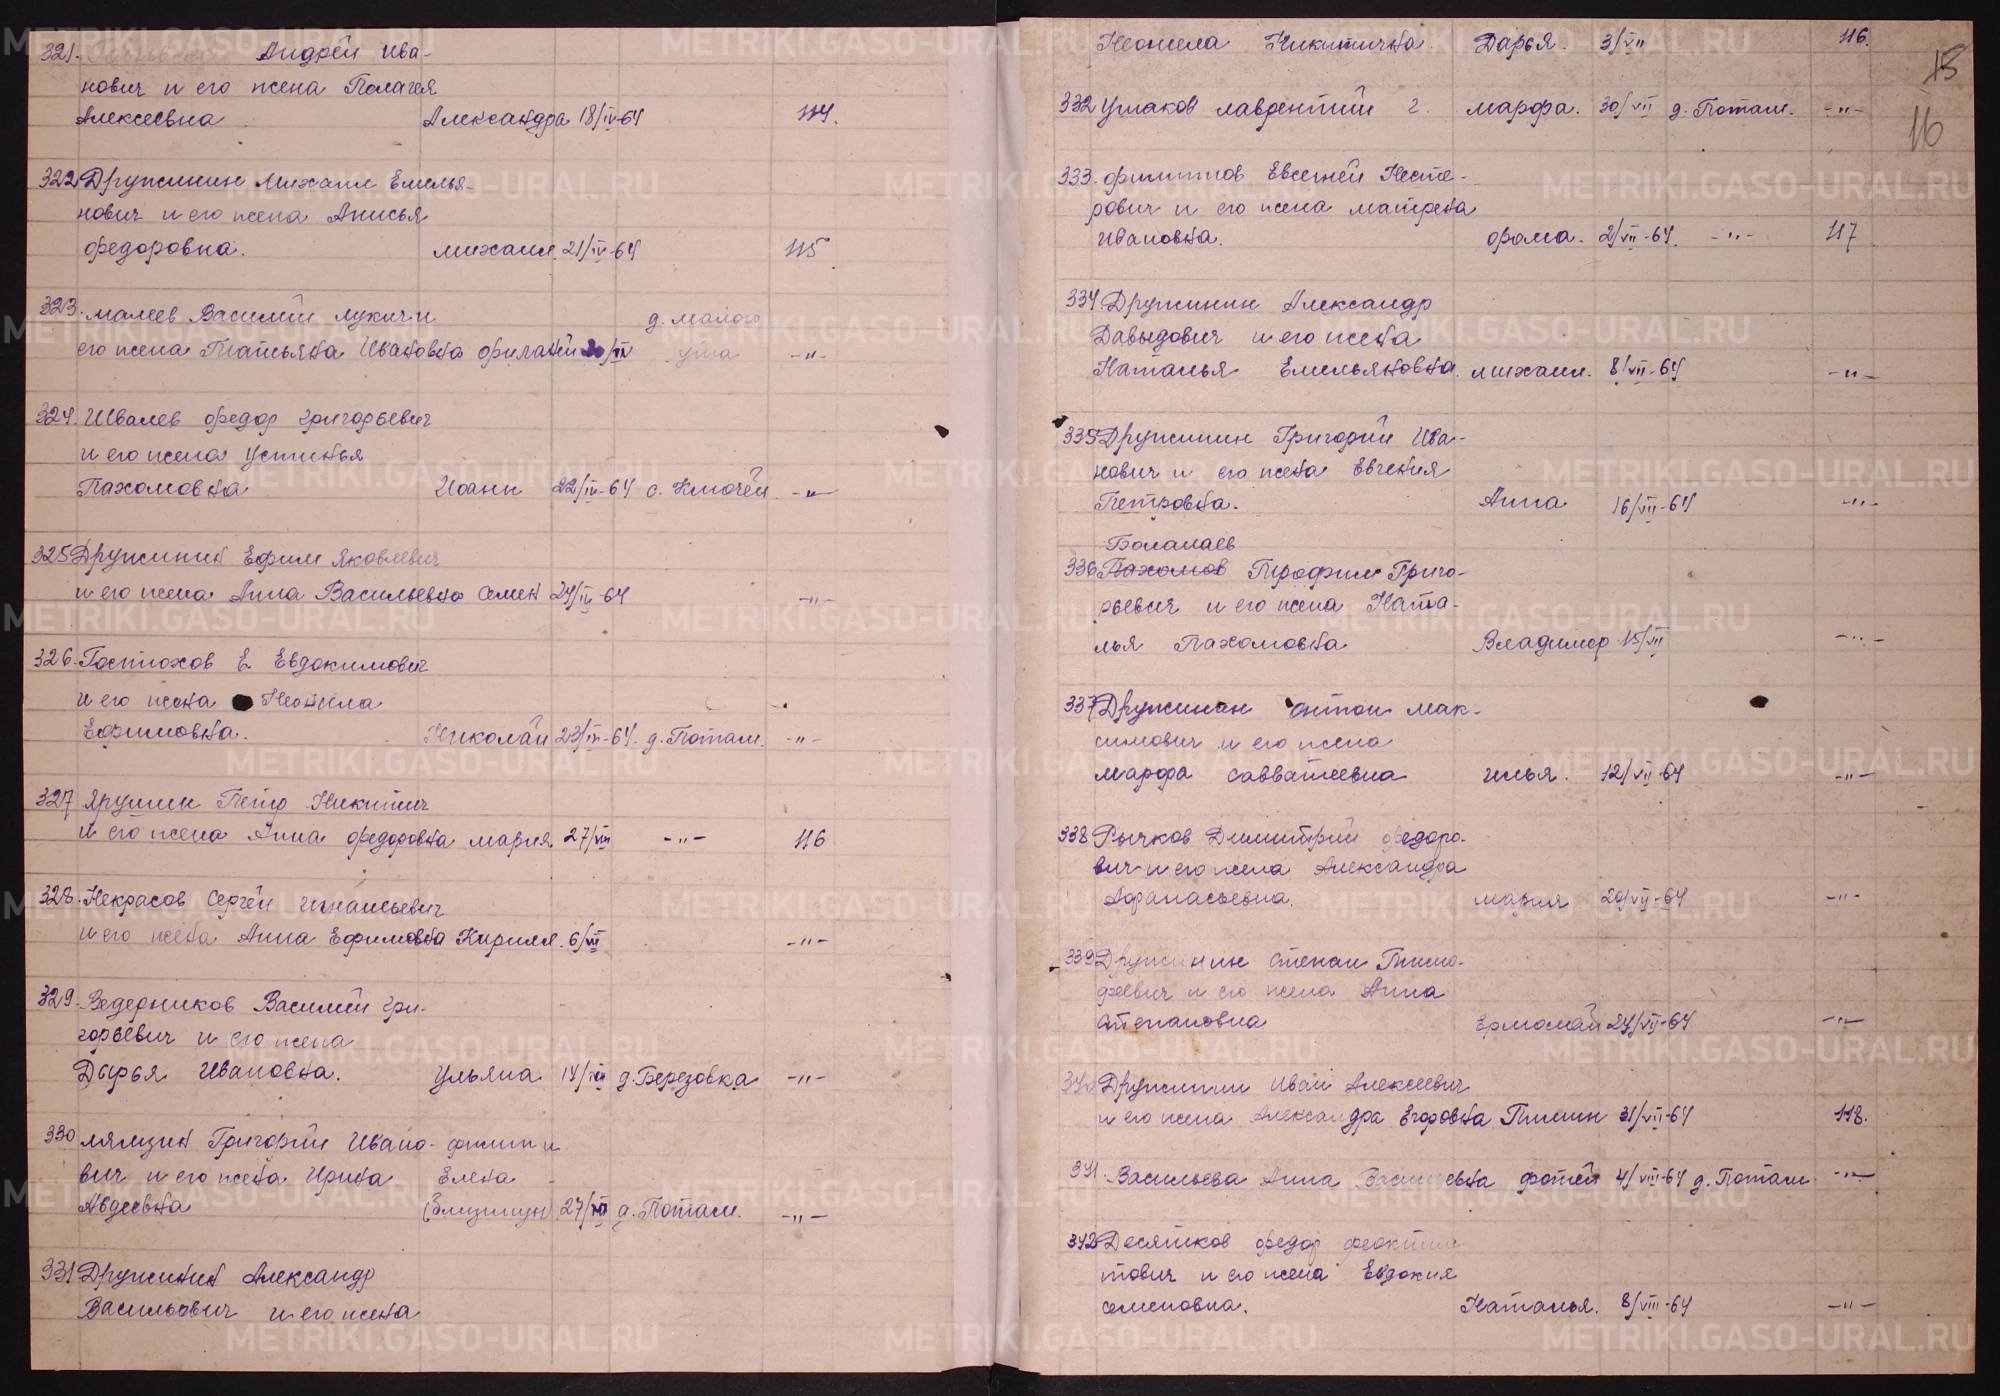 321. Андрей Ива-
нович и его жена Полагея
Алексеевна Александра 18/IV-64 114.
322 Дружинин Михаил Емелья-
нович и его жена Анисья
Федоровна. Михаил. 21/IV-64 115.
323. Малеев Василий Лукич и д. Малого
его жена Татьяна Ивановна Филаней 20/IV Ута -"-
324. Швалев Федор Григорьевич
и его жена Устинья
Пахомовна Иоанн 22/IV-64 с. Ключей -"-
325 Дружинин Ефим Яковлевич
и его жена Анна Васильевна Семен 24/IV-64 -"-
326. Гостюхов Е. Евдокимович
и его жена Неонила
Ефимовна. Николай 23/IV-64. д. Поташ. -"-
327 Ярушин Петр Никитич
и его жена Анна Федоровна Мария 27/VII -"- 116
328. Некрасов Сергей Игнатьевич
и его жена Анна Ефимовна Кирилл. 6/VII -"-
329. Ведерников Василий Гри-
горьевич и его жена
Дарья Ивановна. Ульяна 14/VII д. Березовка -"-
330 Лямзин Григорий Ивано- Филипп и
вич и его жена Ирина Елена
Авдеевна (близнецы) 27/VII д. Поташ. -"-
331 Дружинин Александр
Васильевич и его жена
Неонела Никитична. Дарья. 3/VII 116.
15
332 Ушаков Лаврентий Г. Марфа. 30/VII д. Поташ. -"-
16
333. Филиппов Евсегней Несте-
рович и его жена Матрена
Ивановна. Фома. 2/VII-64. -"- 117
334. Дружинин Александр
Давыдович и его жена
Наталья Емельяновна. Михаил. 8/VII-64 -"-
335 Дружинин Григорий Ива-
нович и его жена Евгения
Петровна. Анна 16/VII-64 -"-
336 Пахомов Трофим Григо-
рьевич и его жена Ната-
лья Пахомовна Владимер 15/VII -"-
337 Дружинин Антон Мак-
симович и его жена
Марфа Савватеевна Илья. 12/VII-64 -"-
338 Рычков Димитрий Федоро-
вич и его жена Александра
Афанасьевна. Мария 20/VII-64 -"-
339 Дружинин Степан Тимо-
феевич и его жена Анна
Степановна Ермолай 24/VII-64 -"-
340 Дружинин Иван Алексеевич
и его жена Александра Егоровна Тимин 31/VII-64 118.
341. Васильева Анна Васильевна Фотей 4/VIII-64 д. Поташ. -"-
342 Десятков Федор Феоктис
тович и его жена Евдокия
Семеновна. Наталья. 8/VIII-64 -"-